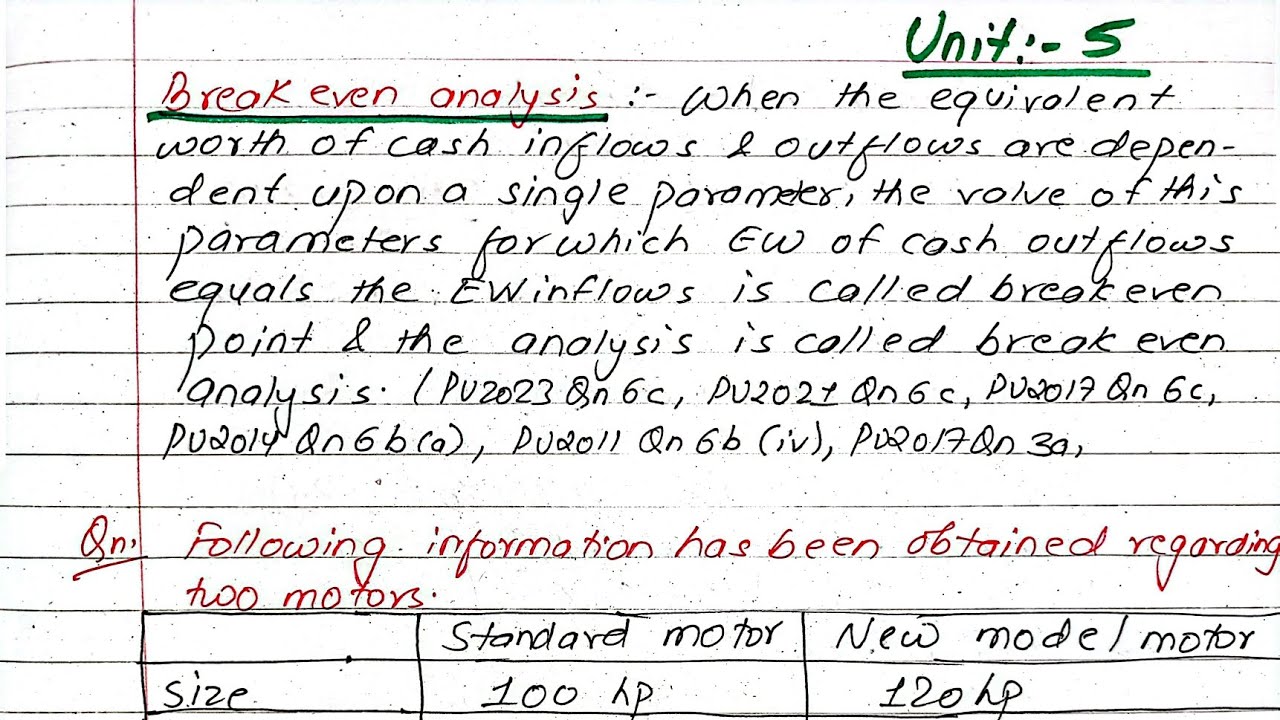 Unit:- 5
Break even analysis :- When the equivalent
worth of cash inflows & outflows are depen-
dent upon a single parameter, the value of this
parameters for which EW of cash outflows
equals the EW inflows is called break even
point & the analysis is called break even
analysis. (PU2023 Qn 6c, PU2021 Qn 6c, PU2017 Qn 6c,
PU2014 Qn 6b(a), PU2011 Qn 6b (iv), PU2017 Qn 3a,
Qn. Following information has been obtained regarding
two motors.
Standard motor New model motor
Size 100 hp 120 hp